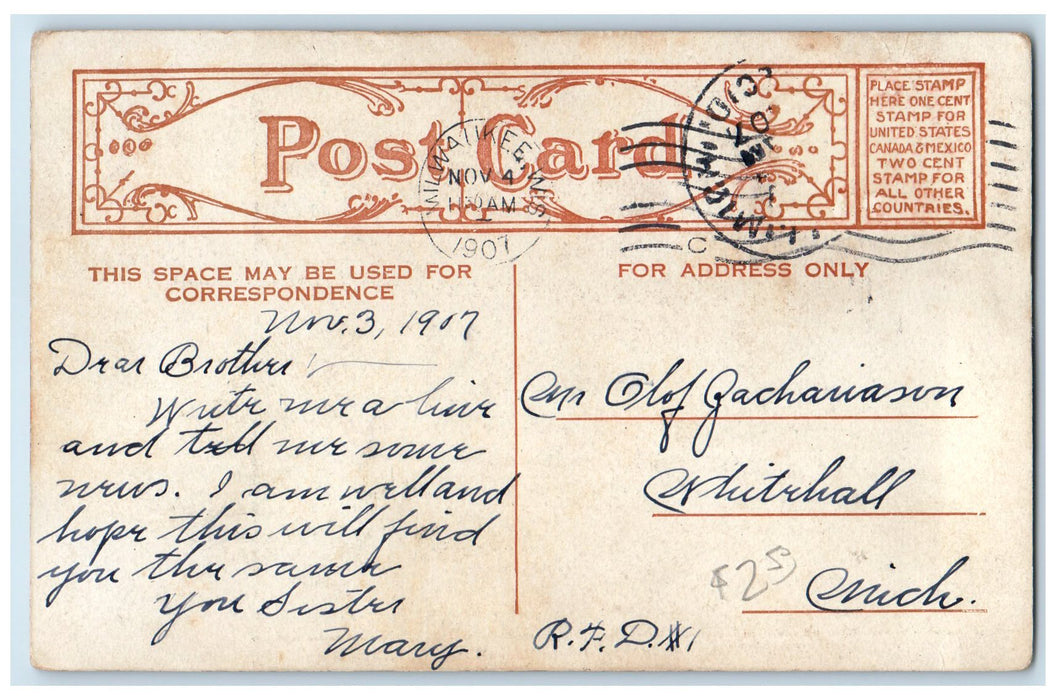 Post Card
PLACE STAMP
HERE ONE CENT
STAMP FOR
UNITED STATES
CANADA & MEXICO
TWO CENT
STAMP FOR
ALL OTHER
COUNTRIES.
MILWAUKEE, WIS.
NOV 4
AM
1907
C
THIS SPACE MAY BE USED FOR
CORRESPONDENCE
Nov. 3, 1907
Dear Brother
Write me a line
and tell me some
news. I am well and
hope this will find
you the same
You Sister
Mary.
FOR ADDRESS ONLY
Mr Olof Zachariason
Whitehall
$2.50
Mich.
R.F.D. #1